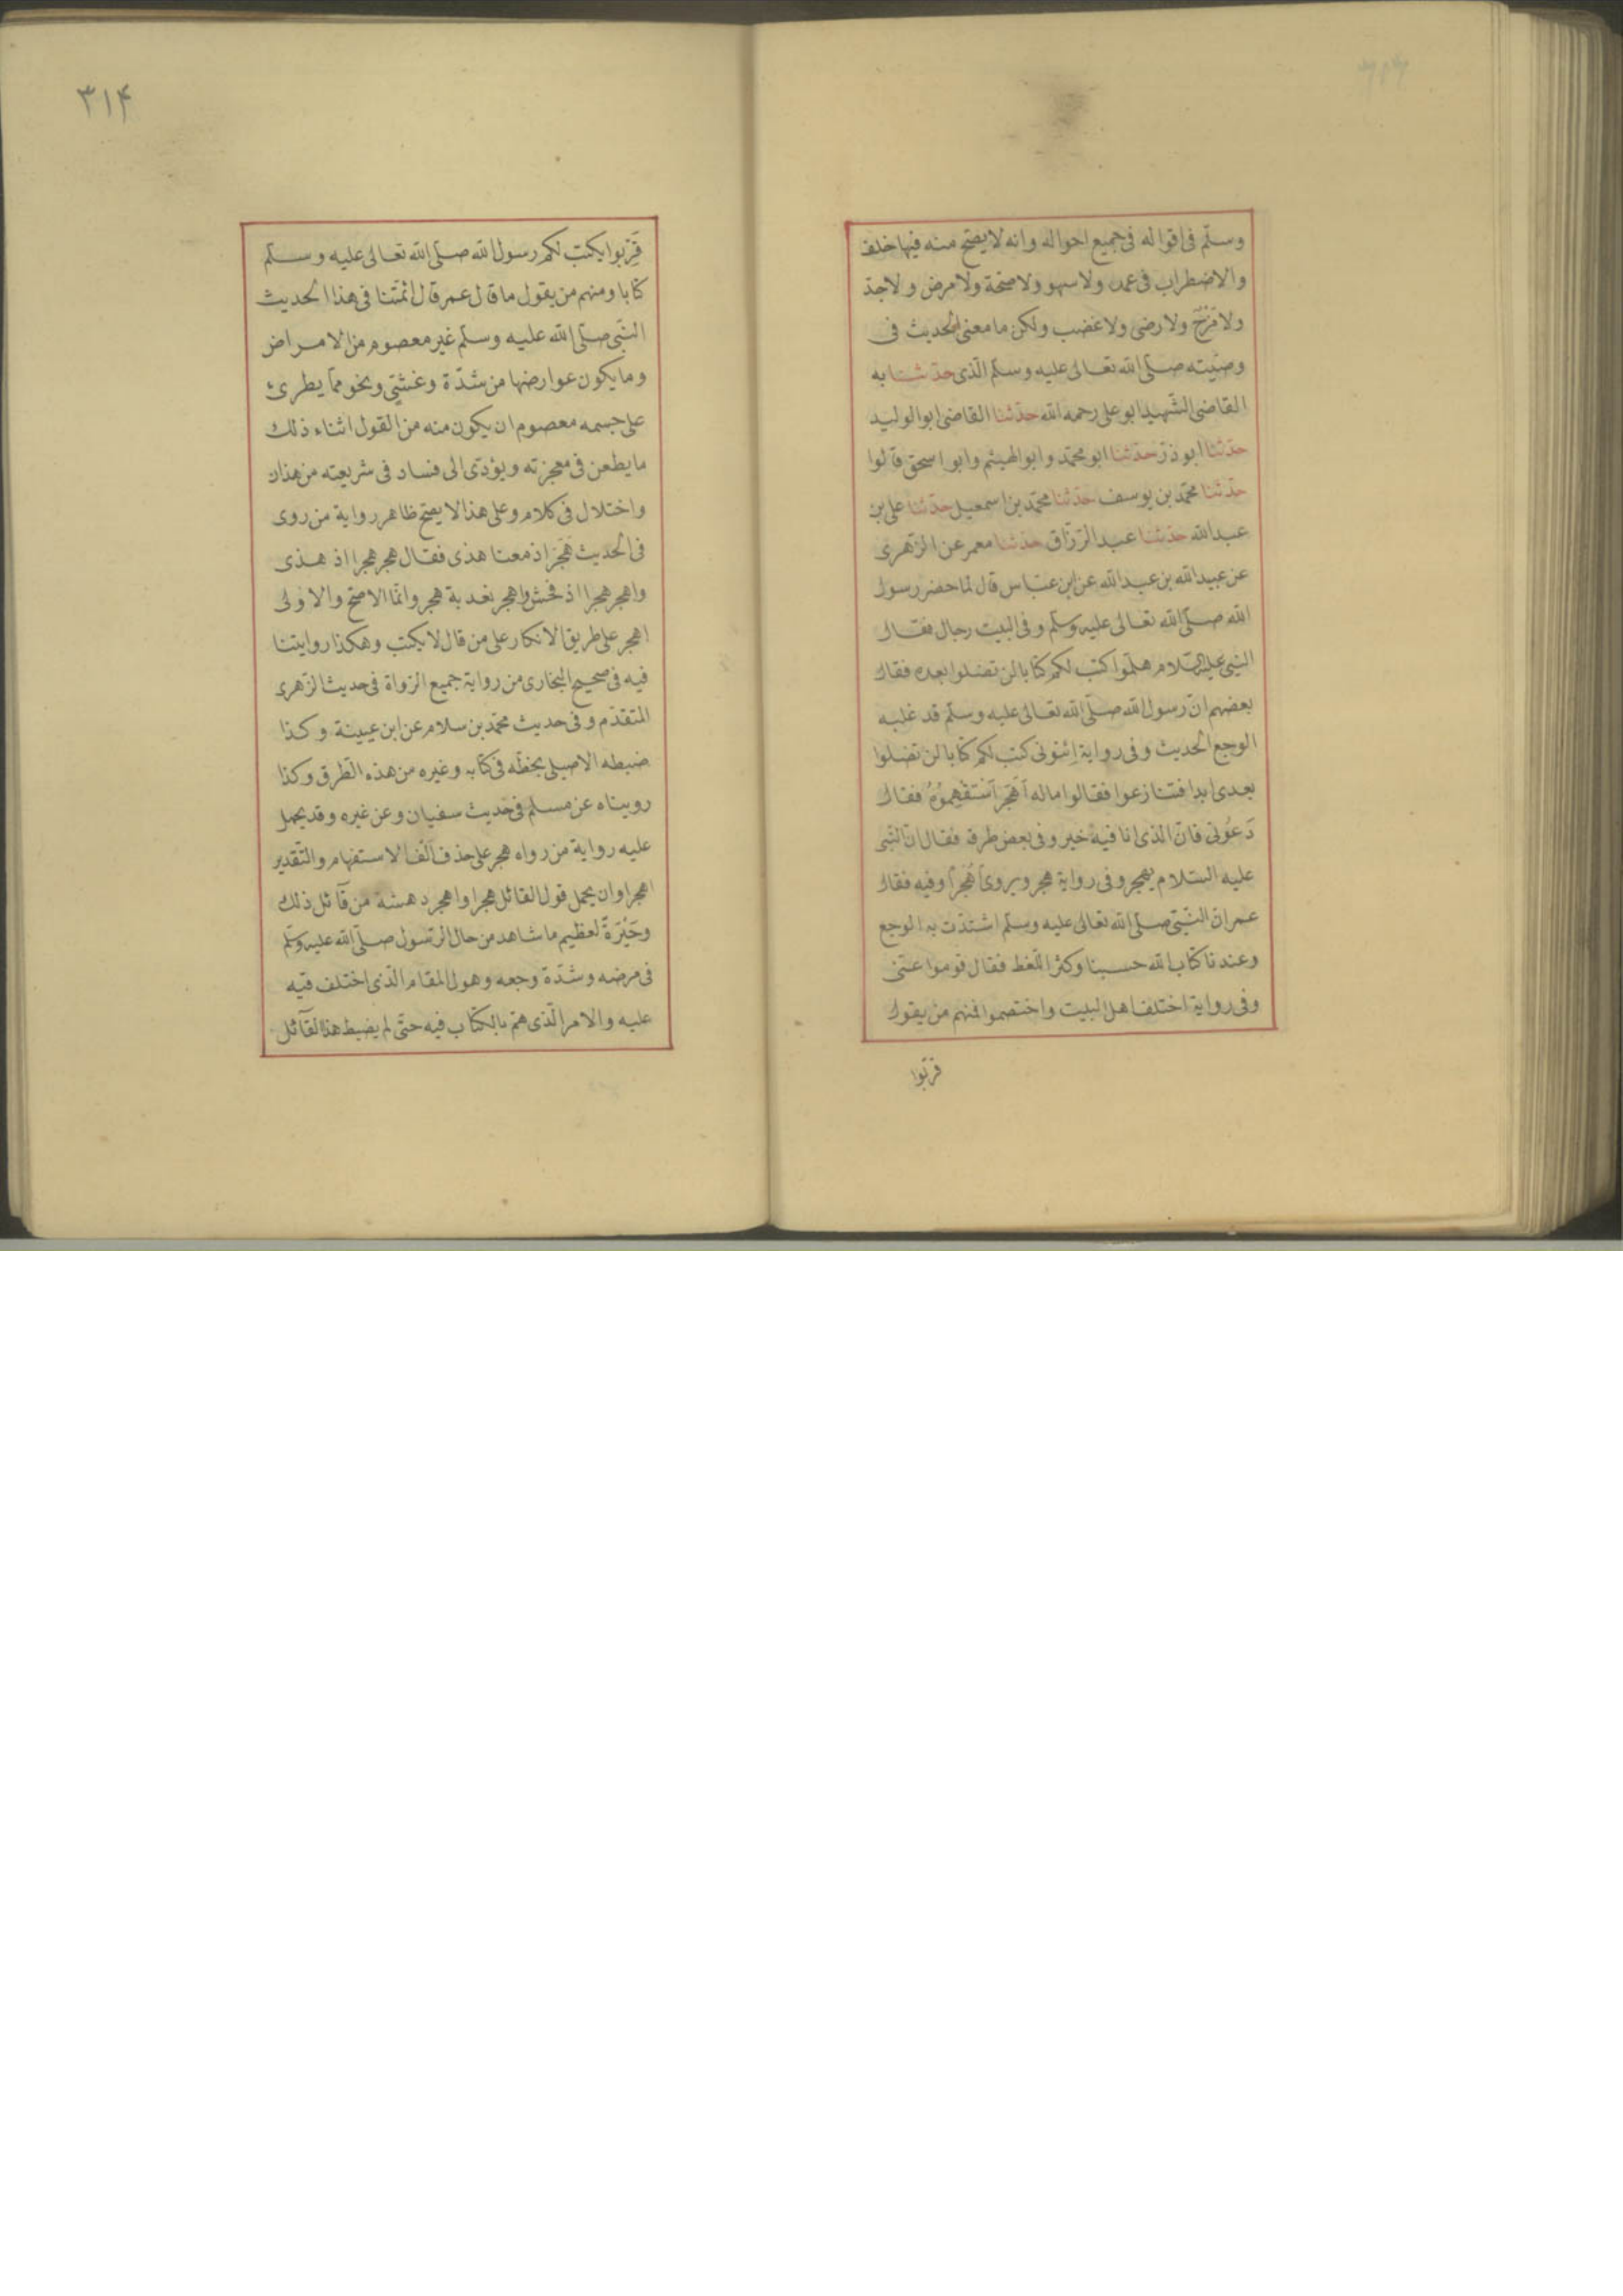 وسلّم فى اقواله فى جميع احواله وانه لا يصحّ منه فيها خلف
والاضطراب فى عمد ولا سهو ولا صحّة ولا مرض ولا جدّ
ولا مَزْحٌ ولا رضى ولا غضب ولكن ما معنى الحديث فى
وصيّته صلّى الله تعالى عليه وسلّم الّذى حدّثنا به
القاضى الشّهيد ابو على رحمه الله حدّثنا القاضى ابو الوليد
حدّثنا ابو ذرّ حدّثنا ابو محمّد وابو الهيثم وابو اسحق قالوا
حدّثنا محمّد بن يوسف حدّثنا محمّد بن اسمعيل حدّثنا على بن
عبدالله حدّثنا عبد الرّزّاق حدّثنا معمر عن الزّهرى
عن عبيد الله بن عبد الله عن ابن عبّاس قال لما حضر رسول
الله صلّى الله تعالى عليه وسلّم وفى البيت رجال فقال
النبى عليه السّلام هلمّوا اكتب لكم كتابا لن تضلوا بعده فقال
بعضهم انّ رسول الله صلّى الله تعالى عليه وسلّم قد غلبه
الوجع الحديث وفى رواية اِئتونى كتب لكم كتابا لن تضلوا
بعدى ابدا فتنازعوا فقالوا ماله أهَجَرَ اسْتَفْهِمُوُهُ فقال
دَعُونى فانّ الّذى انا فيه خير وفى بعض طرقه فقال انّ النّبى
عليه السّلام يهجر وفى رواية هجر ويروى أهُجْراً وفيه فقال
عمر انّ النّبىّ صلّى الله تعالى عليه وسلّم اشتدّت به الوجع
وعندنا كتاب الله حسبنا وكثر اللّغط فقال قوموا عنّى
وفى رواية اختلف اهل البيت واختصموا فمنهم من يقول
قرّبوا
٣١۴
قَرِّبوا يكتب لكم رسول الله صلّى الله تعالى عليه وسلّم
كتابا ومنهم من يقول ما قال عمر قال ائمّتنا فى هذا الحديث
النّبى صلّى الله عليه وسلّم غير معصوم من الامراض
وما يكون عوارضها من شدّة وغشىٍ ونحو ممّا يطرىء
على جسمه معصوم ان يكون منه من القول اثناء ذلك
ما يطعن فى معجزته ويؤدّى الى فساد فى شريعته من هذان
واختلال فى كلام وعلى هذا لا يصحّ ظاهر رواية من روى
فى الحديث هَجَرَ اذ معنا هذى فقال هجر هجرا اذ هذى
واهجر هجرا اذ فحش واهجر تعدية هجر وانّما الاصحّ والاولى
اهجر على طريق الانكار على من قال لا يكتب وهكذا روايتنا
فيه فى صحيح البخارى من رواية جميع الرّواة فى حديث الزّهرى
المتقدّم وفى حديث محمّد بن سلام عن ابن عيينة وكذا
ضبطه الاصيلى بخطّه فى كتابه وغيره من هذه الطّرق وكذا
رويناه عن مسلم فى حديث سفيان وعن غيره وقد يحمل
عليه رواية من رواه هجر على حذف الف الاستفهام والتّقدير
اهجر اوان يحمل قول القائل هجرا واهجر دهشة من قآئل ذلك
وحَيْرَةً لعظيم ما شاهد من حال الرّسول صلّى الله عليه وسلّم
فى مرضه وشدّة وجعه وهول المقام الّذى اختلف فيه
عليه والامر الّذى همّ بالكتاب فيه حتّى لم يضبط هذا القآئل